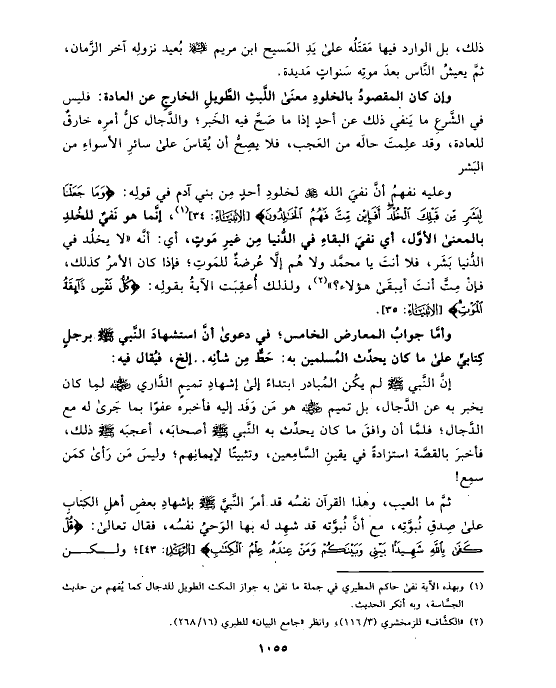 ذلك، بل الوارد فيها مَقتَلُه علىٰ يَدِ المَسيح ابن مريم ﷺ بُعيد نزولِه آخر الزَّمان،
ثمَّ يعيشُ النَّاس بعدَ موتِه سَنواتٍ مَديدة.
وإن كان المقصودُ بالخلودِ معنَىٰ اللَّبثِ الطَّويلِ الخارجِ عن العادة: فليس
في الشَّرعِ ما يَنفي ذلك عن أحدٍ إذا ما صَحَّ فيه الخَبر؛ والدَّجال كلُّ أمرِه خارقٌ
للعادة، وقد علِمتَ حالَه من العَجب، فلا يصِحُّ أن يُقاسَ علىٰ سائرِ الأسواءِ من
البَشر
وعليه نفهمُ أنَّ نفيَ الله ﷻ لخلودِ أحدٍ مِن بني آدم في قولِه: ﴿وَمَا جَعَلْنَا
لِبَشَرٍ مِّن قَبْلِكَ الْخُلْدَ أَفَإِين مِّتَّ فَهُمُ الْخَالِدُونَ﴾ [الأنبياء: ٣٤](١)، إنَّما هو نَفيٌ للخُلدِ
بالمعنىٰ الأوَّل، أي نفيَ البقاءِ في الدُّنيا مِن غيرِ موتٍ، أي: أنَّه «لا يخلُد في
الدُّنيا بَشَر، فلا أنتَ يا محمَّد ولا هُم إلَّا عُرضةٌ للمَوتِ؛ فإذا كان الأمرُ كذلك،
فإنْ مِتَّ أنتَ أيبقَىٰ هؤلاء؟»(٢)، ولذلك أُعقِبَت الآيةُ بقولِه: ﴿كُلُّ نَفْسٍ ذَائِقَةُ
الْمَوْتِ﴾ [الأنبياء: ٣٥].
وأمَّا جوابُ المعارضِ الخامس؛ في دعوىٰ أنَّ استشهادَ النَّبي ﷺ برجلٍ
كِتابيٍّ علىٰ ما كان يحدِّث المُسلمين به: حَطٌّ مِن شأنِه.. إلخ، فيُقال فيه:
إنَّ النَّبي ﷺ لم يكُن المُبادر ابتداءً إلىٰ إشهادِ تميم الدَّاري ﵁ لِما كان
يخبر به عن الدَّجال، بل تميم ﵁ هو مَن وَفَد إليه فأخبره عفوًا بما جَرىٰ له مع
الدَّجال؛ فلمَّا أن وافقَ ما كان يحدِّث به النَّبي ﷺ أصحابَه، أعجبَه ﷺ ذلك،
فأخبرَ بالقصَّة استزادةً في يقينِ السَّامِعين، وتثبيتًا لإيمانِهم؛ وليسَ مَن رَأىٰ كمَن
سمِع!
ثمَّ ما العيب، وهذا القرآن نفسُه قد أمرَ النَّبيَّ ﷺ بإشهادِ بعضِ أهلِ الكِتابِ
علىٰ صِدقِ نُبوَّتِه، مع أنَّ نُبوَّته قد شهِد له بها الوَحيُ نفسُه، فقال تعالىٰ: ﴿قُلْ
كَفَىٰ بِاللَّهِ شَهِيدًا بَيْنِي وَبَيْنَكُمْ وَمَنْ عِندَهُ عِلْمُ الْكِتَابِ﴾ [الرعد: ٤٣]؛ ولـكـــن
(١) وبهذه الآية نفىٰ حاكم المطيري في جملة ما نفىٰ به جواز المكث الطويل للدجال كما يُفهم من حديث
الجسَّاسة، وبه أنكر الحديث.
(٢) «الكشَّاف» للزمخشري (١١٦/٣)، وانظر «جامع البيان» للطبري (٢٦٨/١٦).
١٠٥٥